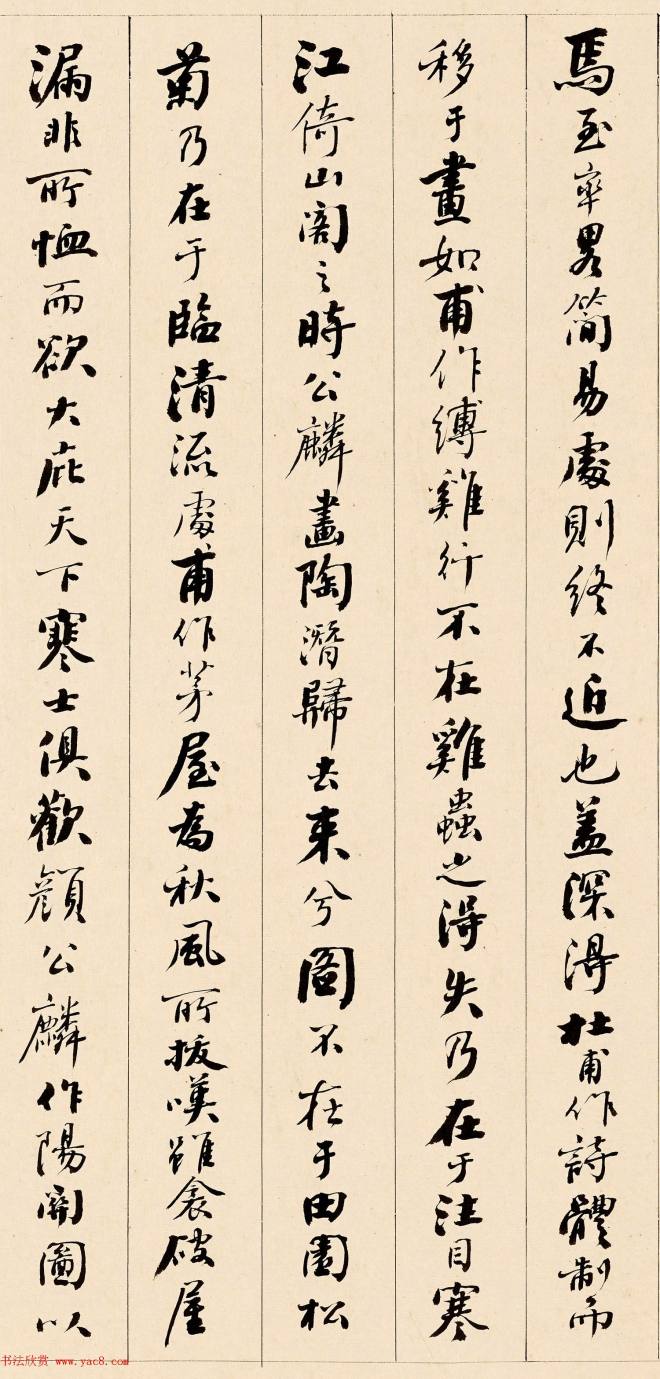 焉至率畧簡易處則終不近也蓋深得杜甫作詩體制而
移于畫如甫作縛雞行不在雞蟲之得失乃在于注目寒
江倚山閣之時公麟畫陶潛歸去來兮圖不在于田園松
菊乃在于臨清流處甫作茅屋為秋風所拔嘆雖衾破屋
漏非所恤而欲大庇天下寒士俱歡顏公麟作陽關圖以
书法欣赏 www.yac8.com